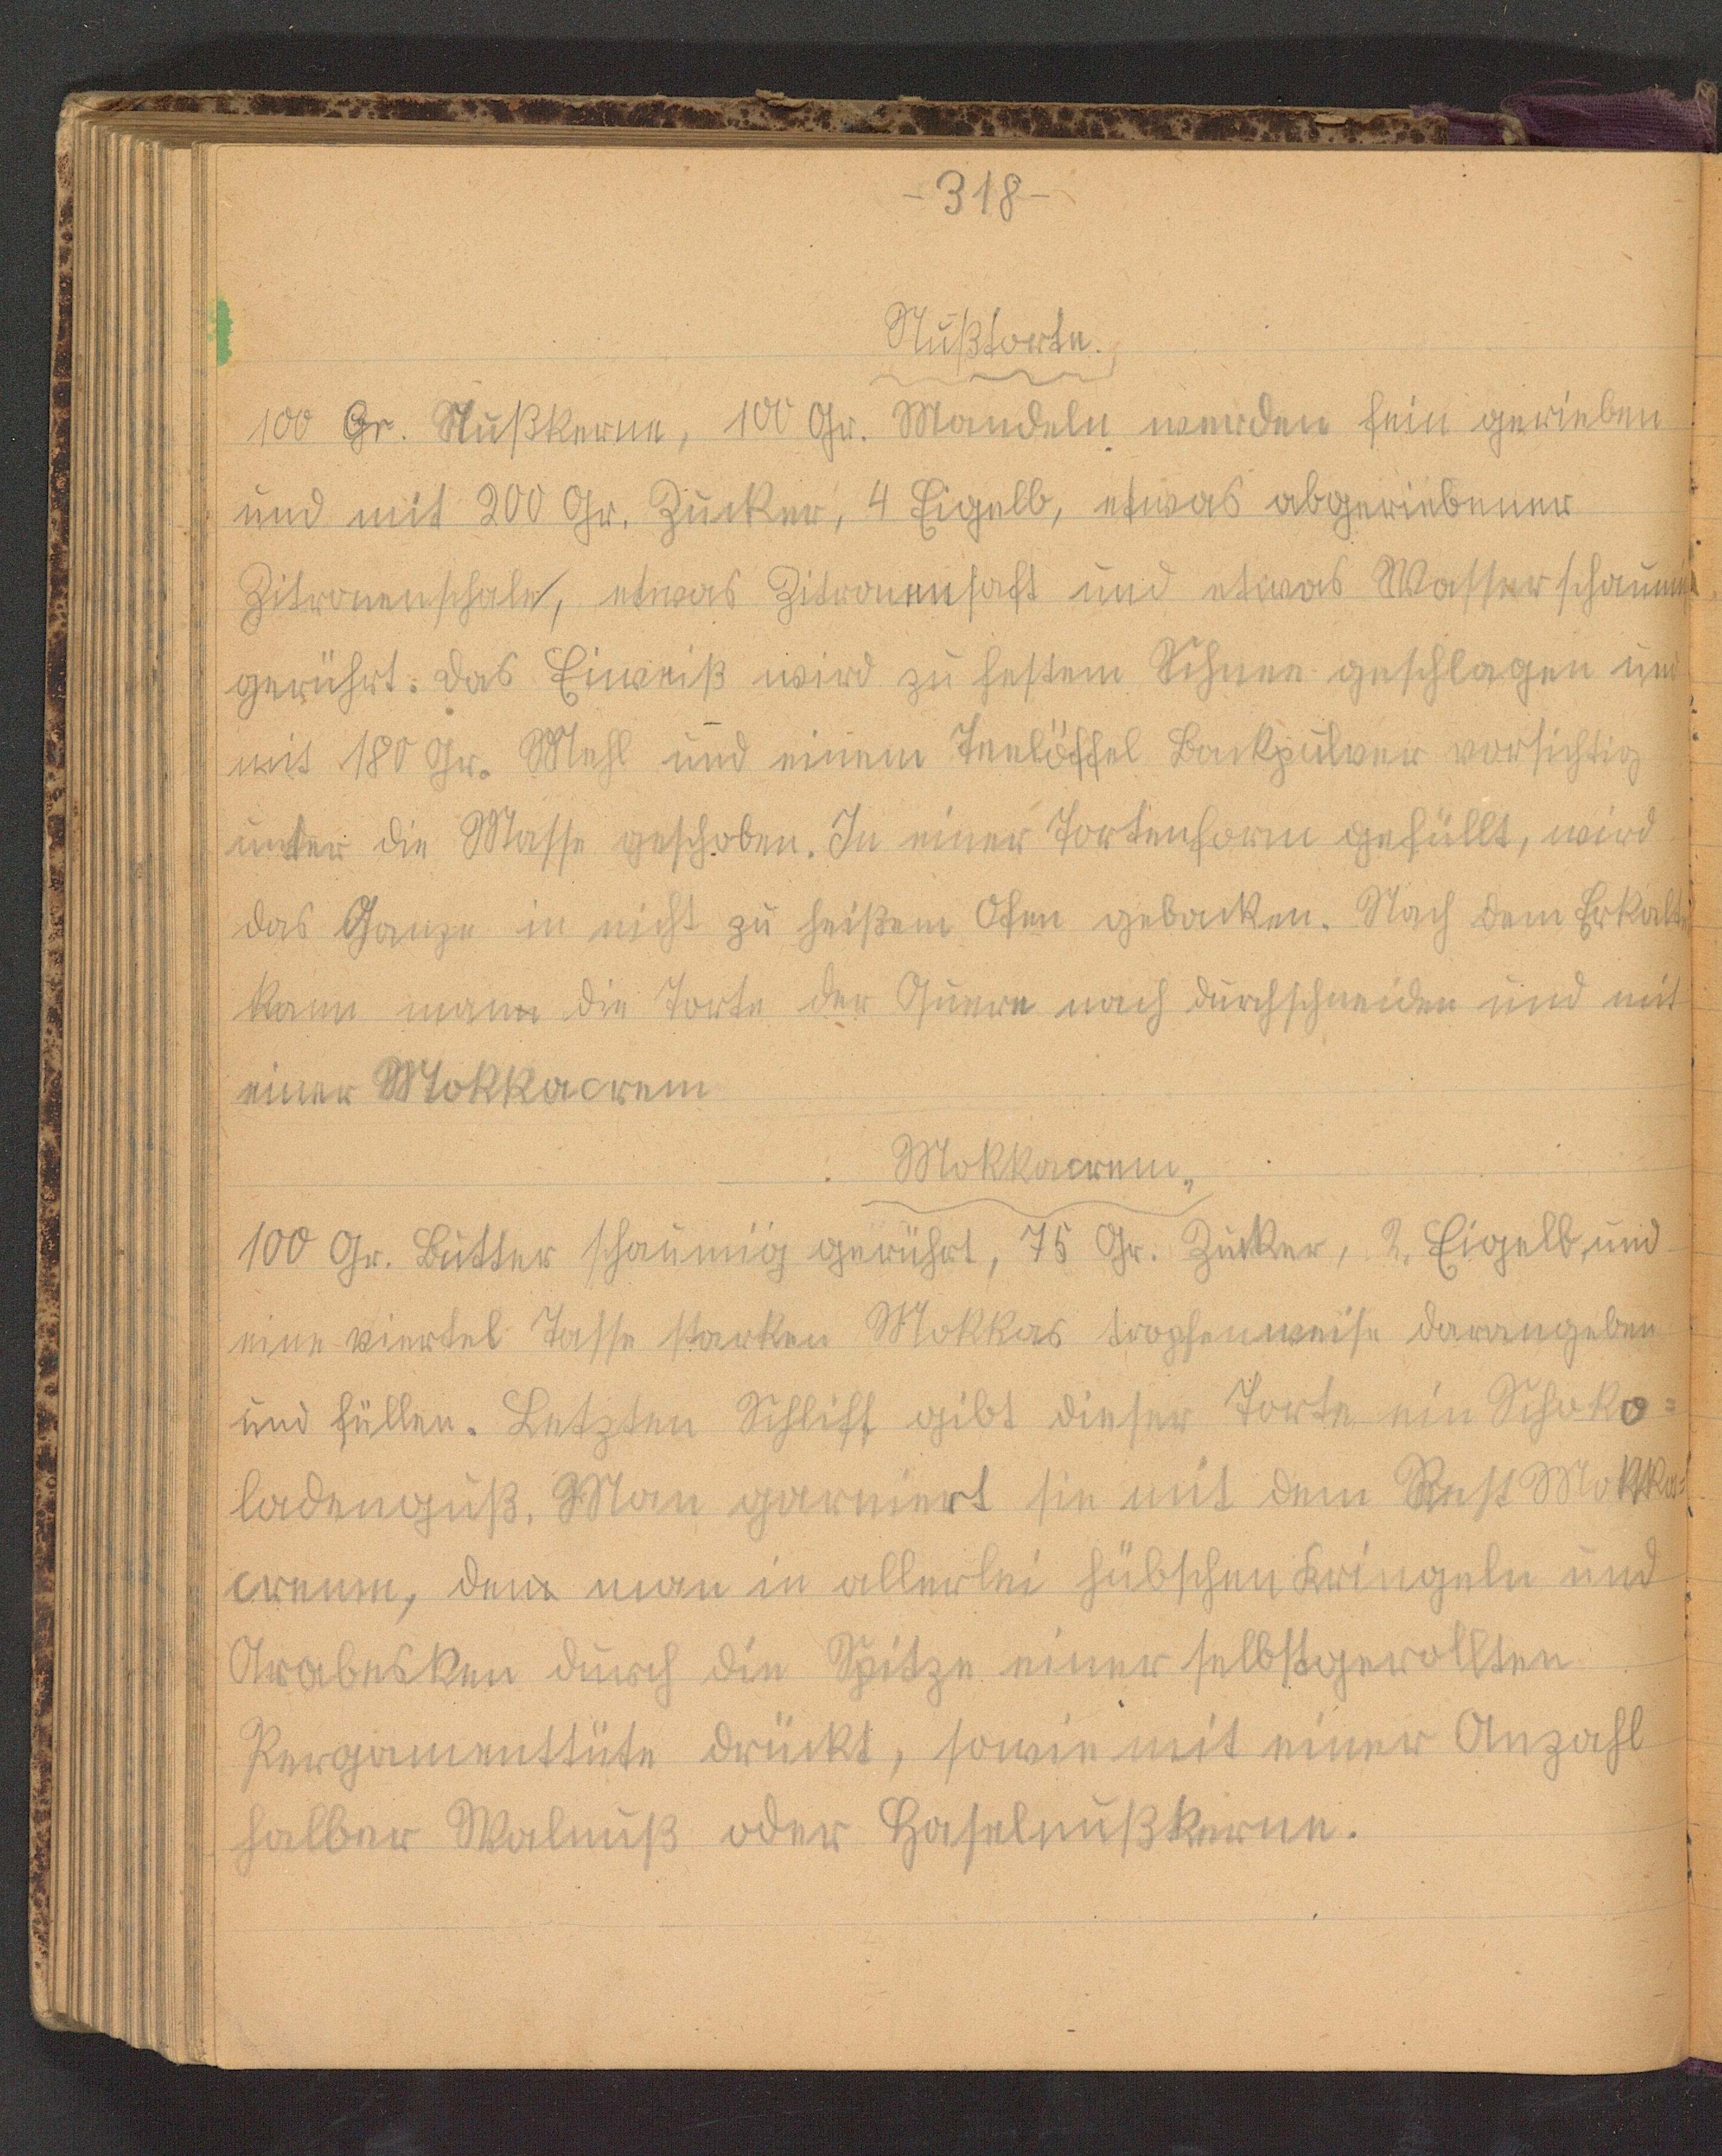 -318-
Nußtorte.
100 Gr. Nußkerne, 100 Gr. Mandeln werden fein gerieben
und mit 200 Gr. Zucker, 4 Eigelb, etwas abgeriebener
Zitronenschale, etwas Zitronensaft und etwas Wasser schaumig
gerührt. Das Eiweiß wird zu festem Schnee geschlagen und
mit 180 Gr. Mehl und einem Teelöffel Backpulver vorsichtig
unter die Masse geschoben. In einer Tortenform gefüllt, wird
das Ganze in nicht zu heißem Ofen gebacken. Nach dem Erkalten
kann man die Torte der Quere nach durchschneiden und mit
einer Mokkacrem
Mokkacrem.
100 Gr. Butter schaumig gerührt, 75 Gr. Zucker, 2 Eigelb und
eine viertel Tasse starken Mokkas tropfenweise darangeben
und füllen. Letzten Schliff gibt dieser Torte ein Schoko=
ladenguß. Man garniert sie mit dem Rest Mokka=
creme, den man in allerlei hübschen Kringeln und
Arabesken durch die Spitze einer selbstgerollten
Pergamenttüte drückt, sowie mit einer Anzahl
halber Walnuß oder Haselnußkerne.